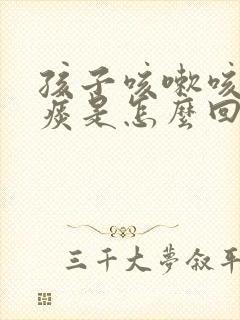 孩子咳嗽咳
痰是怎麼回
三千大夢叙平